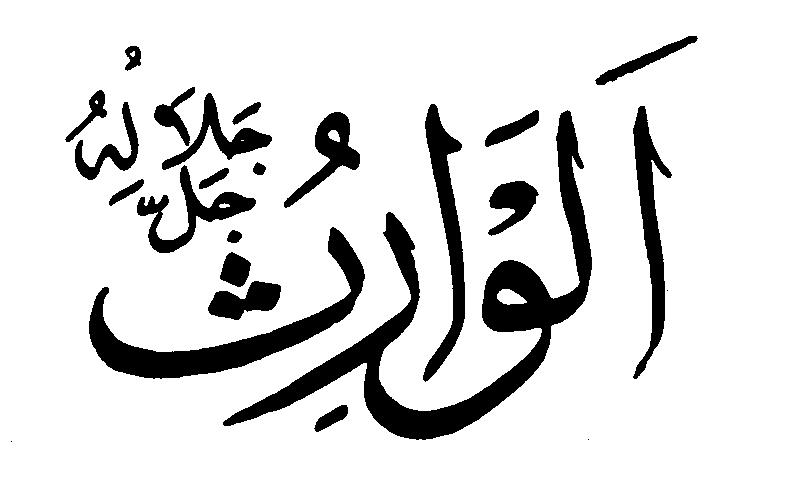 اَلْوَارِثُ
جَلَّ جَلَالُهُ